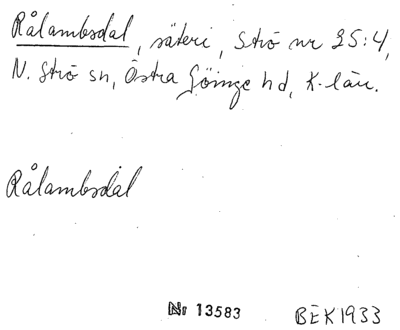 Rålambsdal, säteri, Strö nr 25:4,
N. Strö sn, Östra Göinge hd, K-län.
Rålambsdal
Nr 13583
BEK 1933